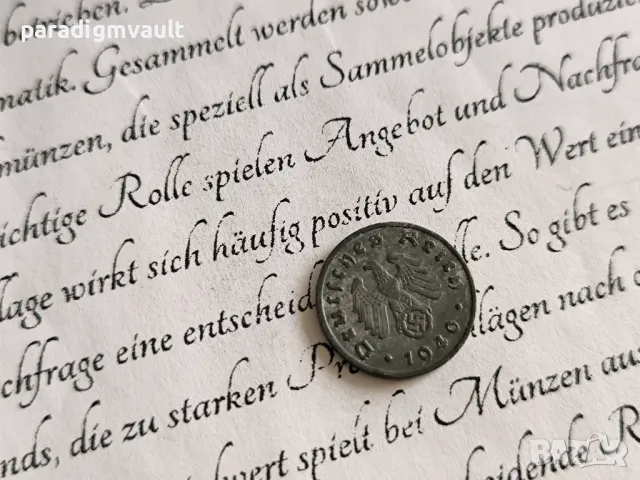 paradigmvault
betrieben.
matik. Gesammelt werden sow
münzen, die speziell als Sammelobjekte produzie
ichtige Rolle spielen Angebot und Nachfra
lage wirkt sich häufig positiv auf den Wert ein
chfrage eine entscheid lle. So gibt es
nds, die zu starken Pre lägen nach o
wert spielt bei Münzen aus
eidende R
Deutsches Reich
1940
BAZAR